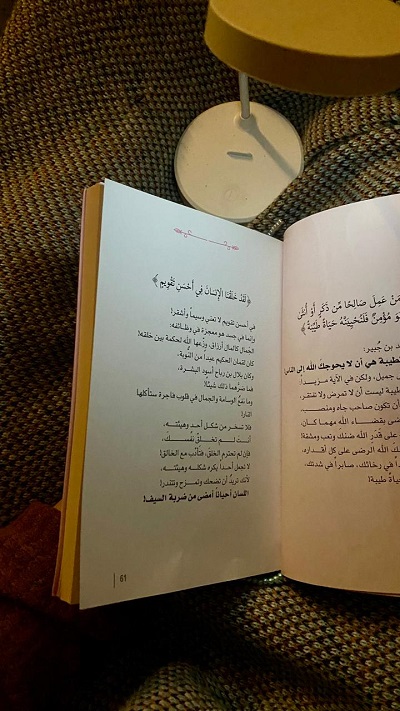 ﴿لَقَدْ خَلَقْنَا الْإِنسَانَ فِي أَحْسَنِ تَقْوِيمٍ﴾
في أحسن تقويم لا تعني وسيماً وأشقر!
وإنما هي جسد هو معجزة في وظائفه،
الجمال كالمال أرزاق، وزّعها الله لحكمة بين خلقه!
كان لقمان الحكيم عبداً من النُّوبة،
وكان بلال بن رباح أسود البشرة،
فما ضرَّهما ذلك شيئاً!
وما نفعُ الوسامة والجمال في قلوب فاجرة ستأكلها
النار!
فلا تسخر من شكل أحد وهيئته،
أنت لم تخلق نفسك،
فإن لم تحترم الخلق، فتأدب مع الخالق!
لا تجعل أحداً يكره شكله وهيئته،
لأنك تريدُ أن تضحك وتمزح وتتندر!
اللسان أحياناً أمضى من ضربة السيف!
61
مَنْ عَمِلَ صَالِحًا مِّن ذَكَرٍ أَوْ أُنثَىٰ
وَهُوَ مُؤْمِنٌ فَلَنُحْيِيَنَّهُ حَيَاةً طَيِّبَةً ﴾
بن جُبير:
الطيبة هي أن لا يحوجك الله إلى الناس!
جميل، ولكن في الآية
طيبة ليست أن لا تمرض ولا تفتقر،
أن تكون صاحب جاه ومنصب،
بقضاء الله مهما كان،
على قدر الله ضنك وتعب ومشقة!
الله الرضى على كل أقداره،
في رخائك، صابراً في شدتك،
حياةٌ طيبة!